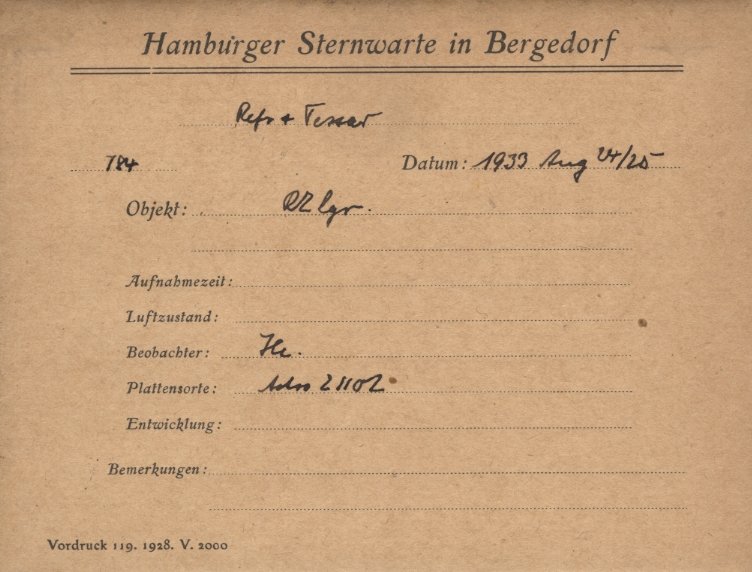 Hamburger Sternwarte in Bergedorf
Refr + Tessar
784 Datum: 1933 Aug 24/25
Objekt: RZ Cyr.
Aufnahmezeit:
Luftzustand:
Beobachter: He.
Plattensorte:
Entwicklung:
Bemerkungen:
Vordruck 119. 1928. V. 2000